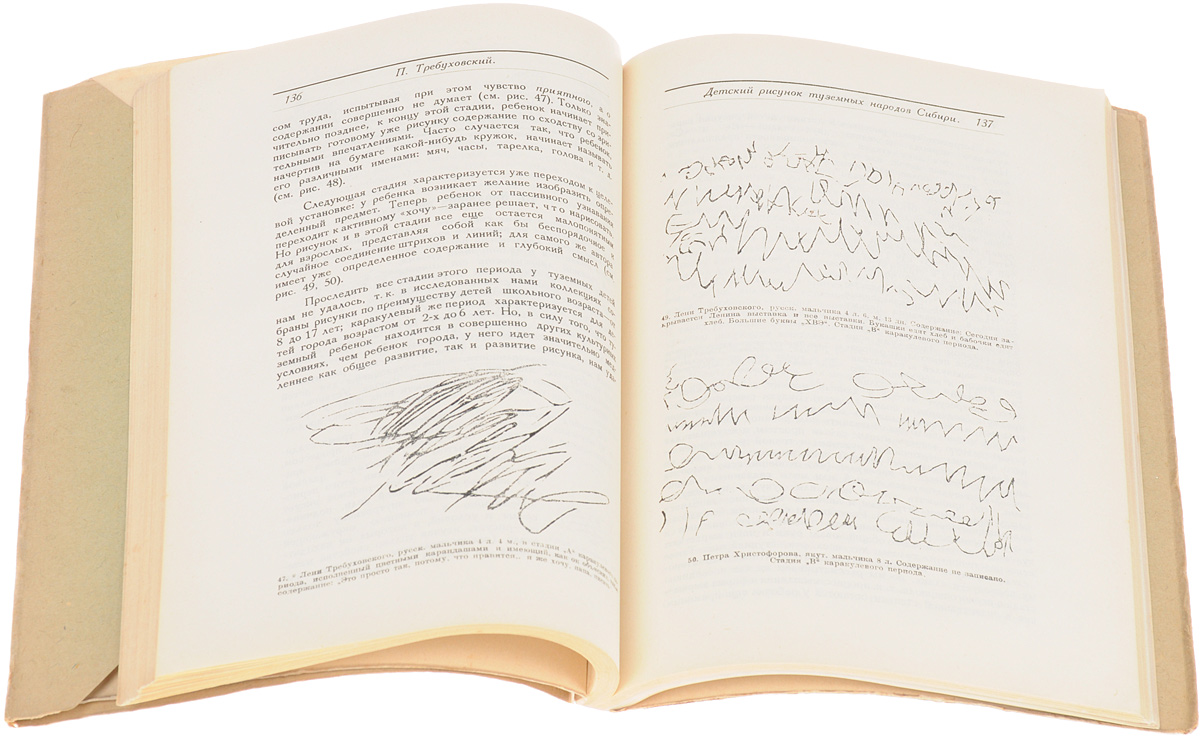 136
П. Требуховский.
сом труда, испытывая при этом чувство приятного, а о
содержании совершенно не думает (см. рис. 47). Только зна-
чительно позднее, к концу этой стадии, ребенок начинает при-
писывать готовому уже рисунку содержание по сходству со зри-
тельными впечатлениями. Часто случается так, что ребенок,
начертив на бумаге какой-нибудь кружок, начинает называть
его различными именами: мяч, часы, тарелка, голова и т. д.
(см. рис. 48).
Следующая стадия характеризуется уже переходом к целе-
вой установке: у ребенка возникает желание изобразить опре-
деленный предмет. Теперь ребенок от пассивного узнавания
переходит к активному «хочу»—заранее решает, что нарисовать.
Но рисунок и в этой стадии все еще остается малопонятным
для взрослых, представляя собой как бы беспорядочное и
случайное соединение штрихов и линий; для самого же автора
имеет уже определенное содержание и глубокий смысл (см.
рис. 49, 50).
Проследить все стадии этого периода у туземных детей
нам не удалось, т. к. в исследованных нами коллекциях со-
браны рисунки по преимуществу детей школьного возраста от
8 до 17 лет; каракулевый же период характеризуется для де-
тей города возрастом от 2-х до 6 лет. Но, в силу того, что ту-
земный ребенок находится в совершенно других культурных
условиях, чем ребенок города, у него идет значительно мед-
леннее как общее развитие, так и развитие рисунка, нам уда-
Лени Требуховского, русск. мальчика 4 л. 4 м., в стадии
риода, исполненный цветными карандашами и имеющий, как он
содержание: „Это просто так, потому, что нравится.. я же хочу,
Детский рисунок туземных народов Сибири.
137
49. Лени Требуховского, русск. мальчика 4 л. 6. м. 15 дн. Содержание: Сегодня за-
крывается Ленина выставка и все выставки. Букашки едят хлеб и бабочки едят
хлеб. Большие буквы „ХВЭ“. Стадия „В“ каракулевого периода.
50. Петра Христофорова, якут. мальчика 8 л. Содержание не записано.
Стадия „В“ каракулевого периода.